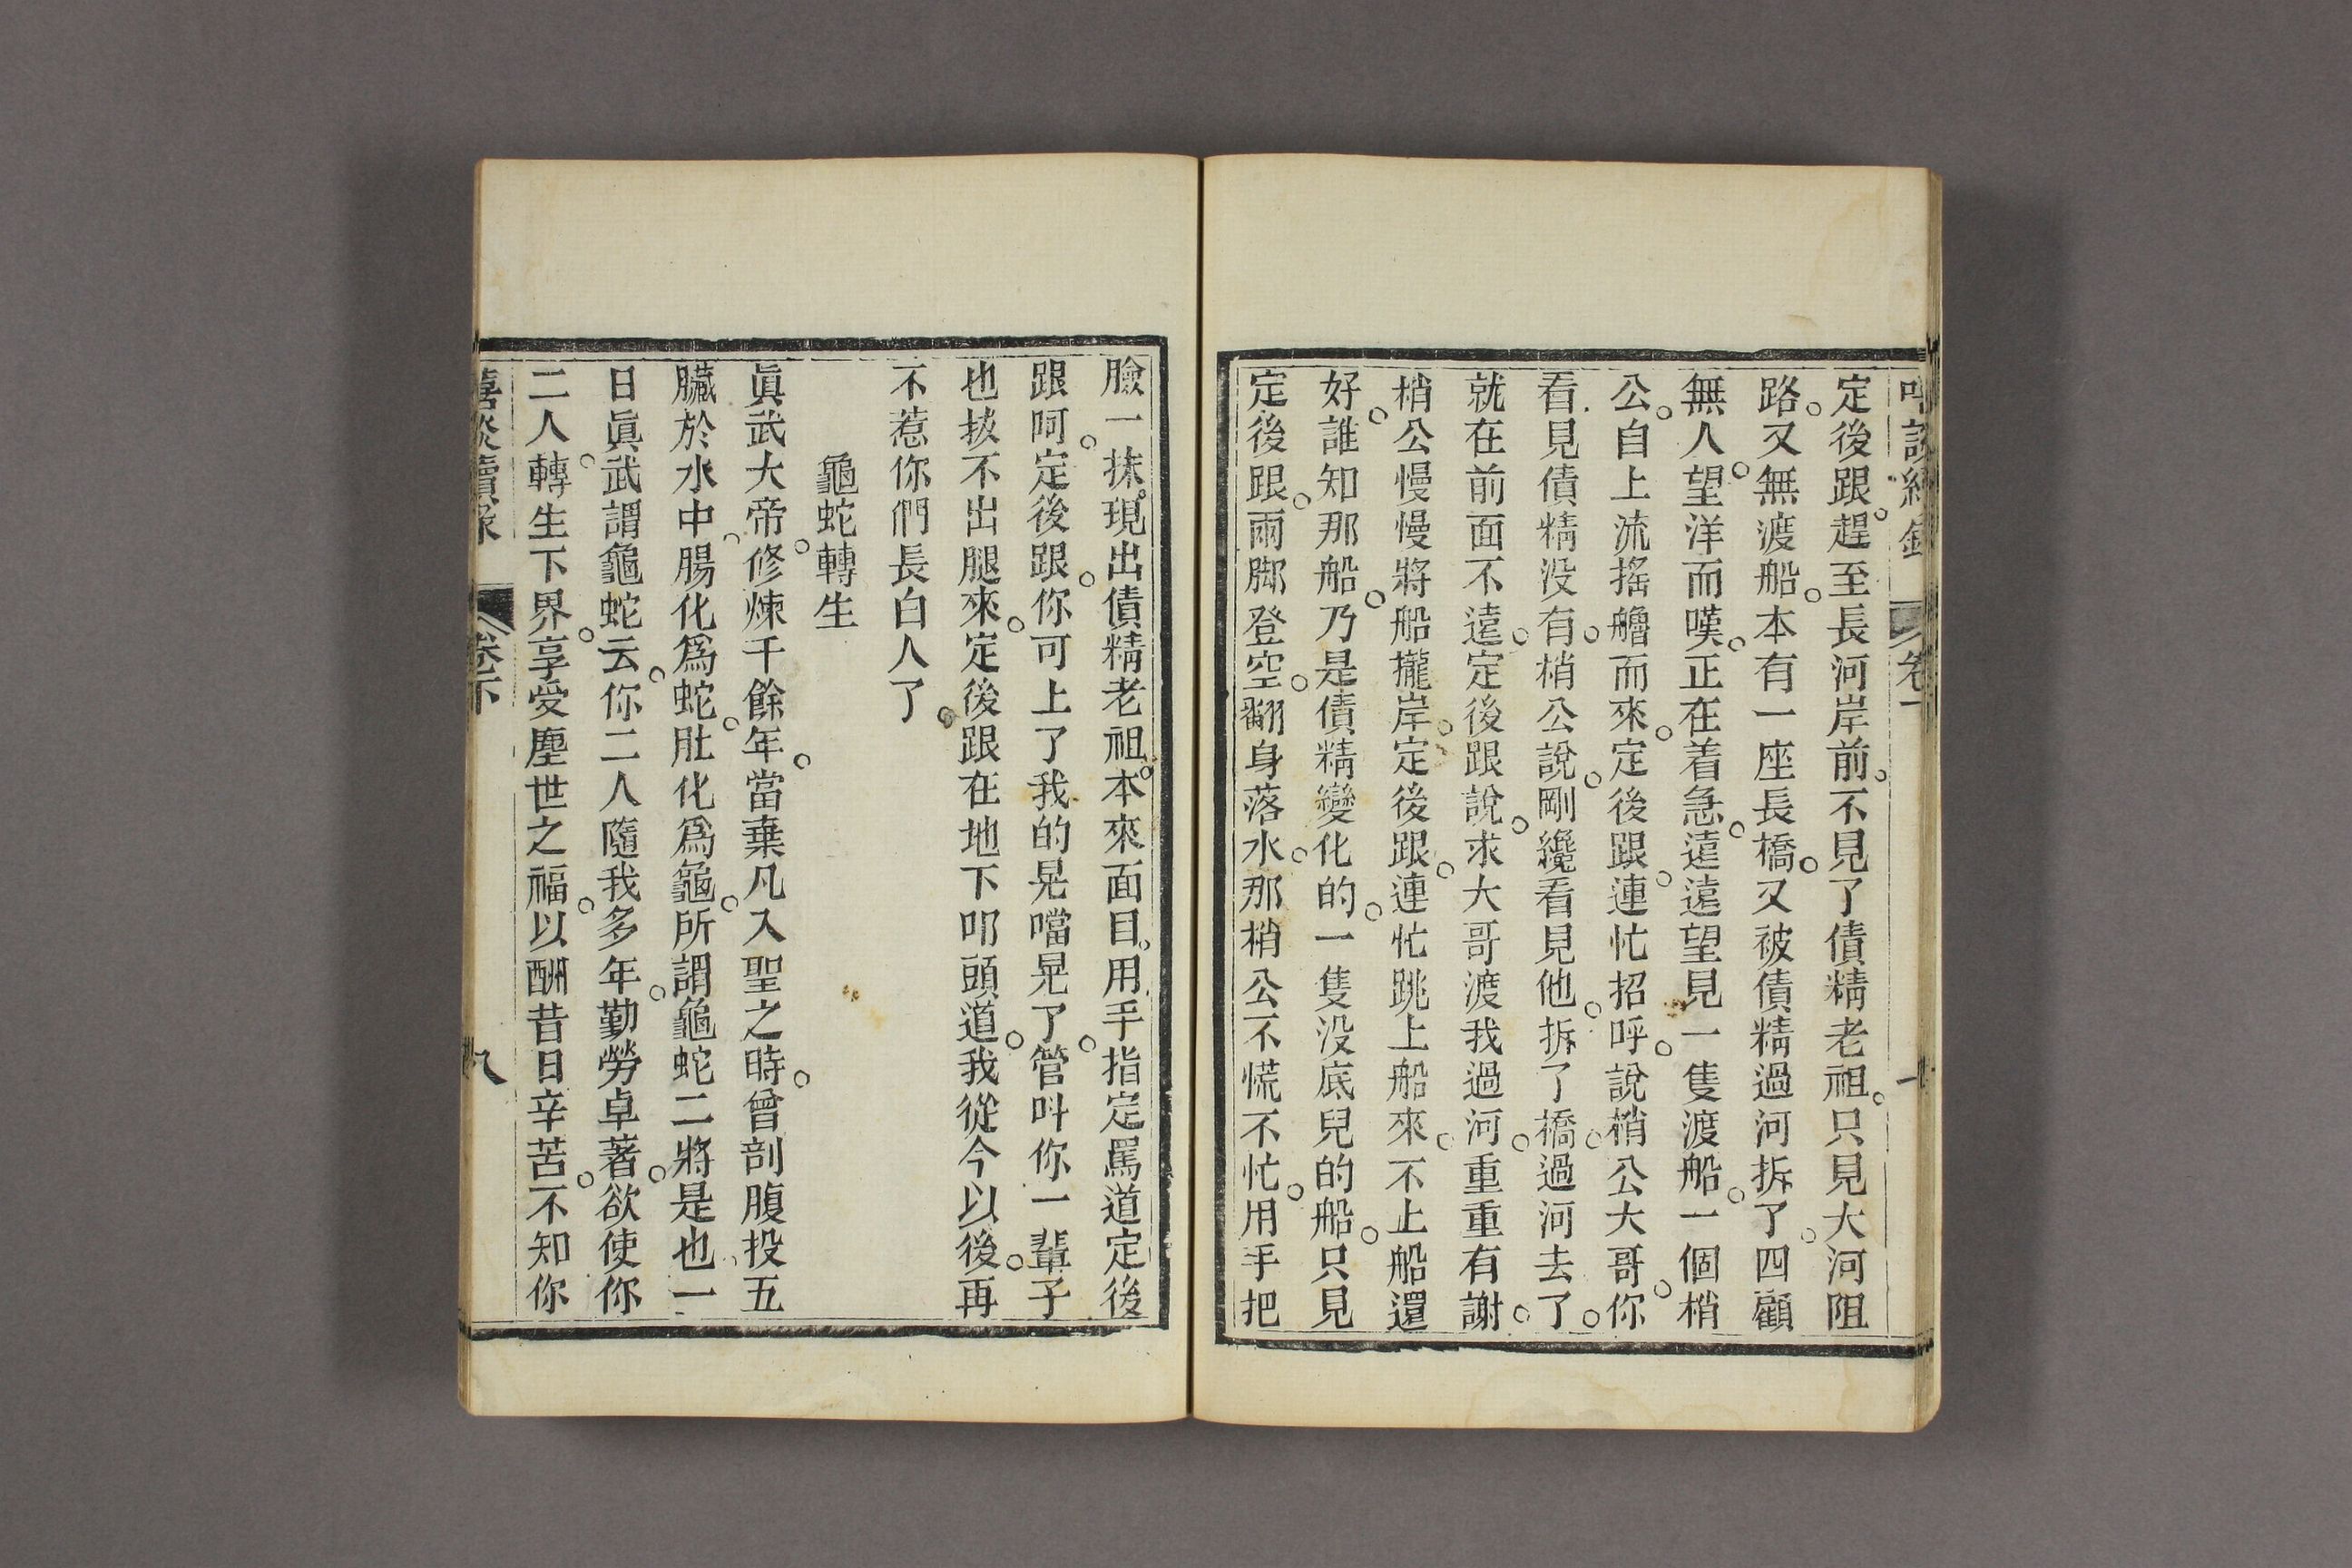 定後跟。趕至長河岸前。不見了債精老祖。只見大河阻
路。又無渡船。本有一座長橋。又被債精過河拆了。四顧
無人。望洋而嘆。正在着急。遠遠望見一隻渡船。一個梢
公。自上流搖艪而來。定後跟。連忙招呼。說梢公大哥。你
看見債精没有。梢公說。剛纔看見他。拆了橋。過河去了。
就在前面不遠。定後跟說。求大哥渡我過河。重重有謝。
梢公慢慢將船攏岸。定後跟。連忙跳上船來。不上船還
好。誰知那船。乃是債精變化的。一隻没底兒的船。只見
定後跟。兩脚登空。翻身落水。那梢公不慌不忙。用手把
臉一抹。現出債精老祖。本來面目。用手指定罵道定後
跟呵。定後跟。你可上了我的晃噹晃了。管呌你一輩子
也拔不出腿來。定後跟在地下叩頭道。我從今以後。再
不惹你們長白人了。
龜蛇轉生
眞武大帝。修煉千餘年。當棄凡入聖之時。曾剖腹投五
臟於水中。腸化爲蛇。肚化爲龜。所謂龜蛇二將是也。一
日眞武謂龜蛇云。你二人隨我多年。勤勞卓著。欲使你
二人。轉生下界。享受塵世之福。以酬昔日辛苦。不知你
嘻談續錄
卷下
八